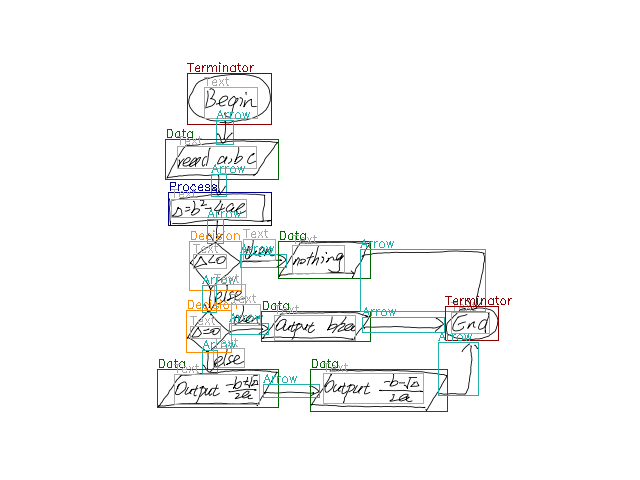 Terminator
Text
Begin
Arrow
Data
Text
read a,b,c
Arrow
Process
Text
Δ=b²-4ac
Arrow
Decision
Text
Δ<0
Arrow
Text
Data
Text
nothing
Arrow
Arrow
Text
else
Decision
Text
Δ=0
Arrow
Text
Data
Text
Output b/2a
Arrow
Terminator
Text
End
Arrow
Arrow
Text
else
Data
Text
Output -b+√Δ/2a
Arrow
Data
Text
Output -b-√Δ/2a